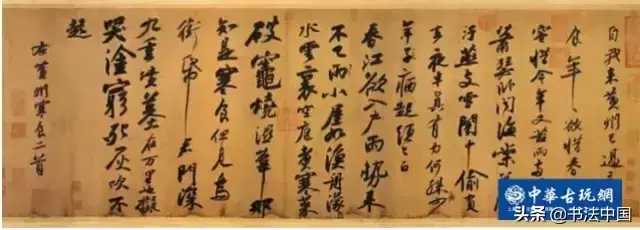 自我來黃州已過三
食年〻欲惜春
容惜今年又苦雨兩
蕭瑟臥聞海棠花
汙燕支雪闇中偷負
去夜半真有力何殊少
年子病起頭已白
春江欲入戶雨勢來
不已雨小屋如漁舟濛
水雲裏空庖煮寒菜
破竈燒濕葦那
知是寒食但見烏
銜帋君門深
九重墳墓在万里也擬
哭塗窮死灰吹不
起
右黃州寒食二首
中華古玩網
头条 @书法中国